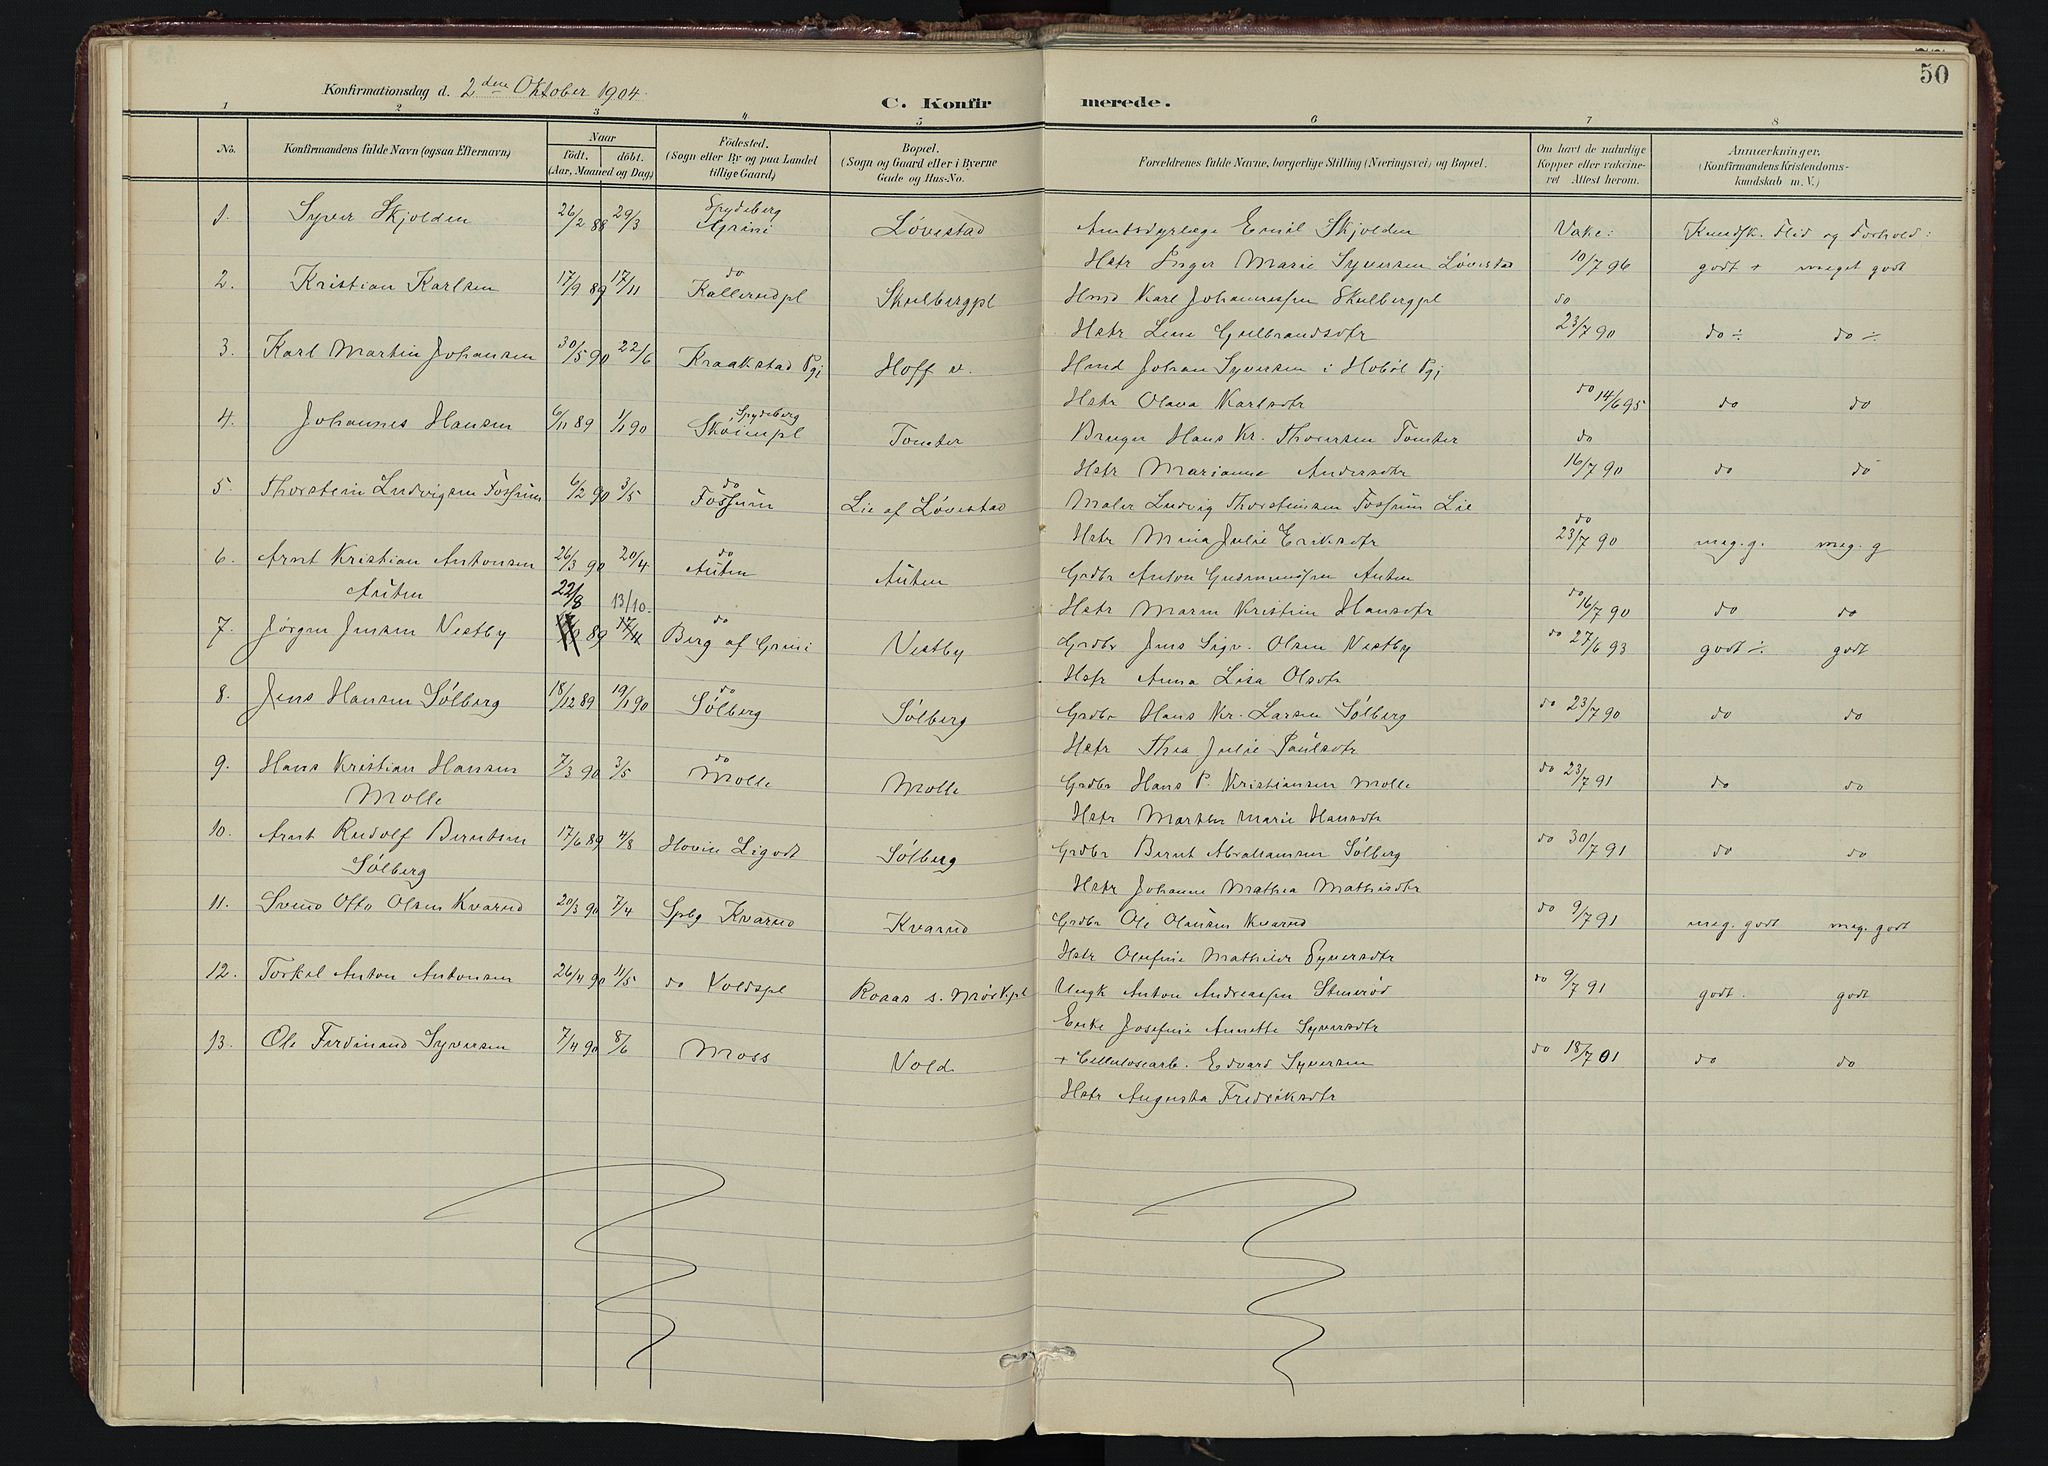 50
Konfirmationsdag d. 2den Oktober 1904.
C. Konfirmerede.
1 2 3 4 5 6 7 8
No.
Konfirmandens fulde Navn (ogsaa Efternavn)
Naar
født. døbt.
(Aar, Maaned og Dag)
Fødested.
(Sogn eller By og paa Landet
tillige Gaard)
Bopæl.
(Sogn og Gaard eller i Byerne
Gade og Hus-No.
Forældrenes fulde Navne, borgerlige Stilling (Næringsvei) og Bopæl.
Om havt de naturlige
Kopper eller vakcine-
ret Attest herom.
Anmærkninger.
(Konfirmandens Kristendoms-
kundskab m. V.)
1. Syver Skjolden 26/2 88 29/3 Spydeberg Grini Løvestad Amtsdyrlæge Emil Skjolden Vakc: Kundsk. Flid og Forhold:
Hstr Inger Marie Syversen Løvestad 10/7 96 godt + meget godt
2. Kristian Karlsen 17/9 89 17/11 do Kallerudpl Skulbergpl Hmd Karl Johannessen Skulbergpl do
Hstr Line Gulbrandsdtr 23/7 90 do ÷ do ÷
3. Karl Martin Johansen 30/5 90 22/6 Kraakstad Pgj Hoff v. Hmd Johan Syversen i Hobøl Pgj
Hstr Olava Karlsdtr do 14/6 95 do do
4. Johannes Hansen 6/11 89 1/1 90 Spydeberg Skoimpl Tomter Bruger Hans Kr. Thoresen Tomter do
Hstr Marianne Andersdtr 16/7 90 do do
5. Thorstein Ludvigsen Fossum 6/2 90 3/5 do Fossum Lie af Løvestad Maler Ludvig Thorsteinsen Fossum Lie
Hstr Mina Julie Eriksdtr do 23/7 90 meg. g. meg. g
6. Arnt Kristian Antonsen 26/3 90 20/4 do Auten Auten Grdbr Anton Gudmundsen Auten
Auten 22/8 13/10. Hstr Maren Kristin Hansdtr do 16/7 90 do do
7. Jørgen Jensen Vestby 89 17/4 do Berg af Grini Vestby Grdbr Jens Sigv. Olsen Vestby do 27/6 93 godt ÷ godt
Hstr Anna Lisa Olsdtr
8. Jens Hansen Sølberg 18/12 89 19/1 90 do Sølberg Sølberg Grdbr Hans Kr. Larsen Sølberg do 23/7 90 do do
Hstr Thea Julie Paulsdtr
9. Hans Kristian Hansen 7/3 90 3/5 do Molle Molle Grdbr Hans P. Kristiansen Molle do 23/7 91 do do
Molle Hstr Marthe Marie Hansdtr
10. Arnt Rudolf Berntsen 17/6 89 4/8 Hovin Ligodt Sølberg Grdbr Bernt Abrahamsen Sølberg do 30/7 91 do do
Sølberg Hstr Johanne Mathea Mathisdtr
11. Svend Otto Olsen Kvarud 20/3 90 7/4 Spbg Kvarud Kvarud Grdbr Ole Olausen Kvarud do 9/7 91 meg. godt meg. godt
Hstr Olufine Mathilde Syversdtr
12. Torkel Anton Antonsen 26/4 90 11/5 do Voldspl Roaas s. Mørkpl Ungk Anton Andreassen Stenerød do 9/7 91 godt. godt
Enke Josefine Annette Syversdtr
13. Ole Ferdinand Syversen 7/4 90 8/6 Moss Vold + Cellulosearb. Edvard Syversen do 18/7 01 do do
Hstr Augusta Fredriksdtr